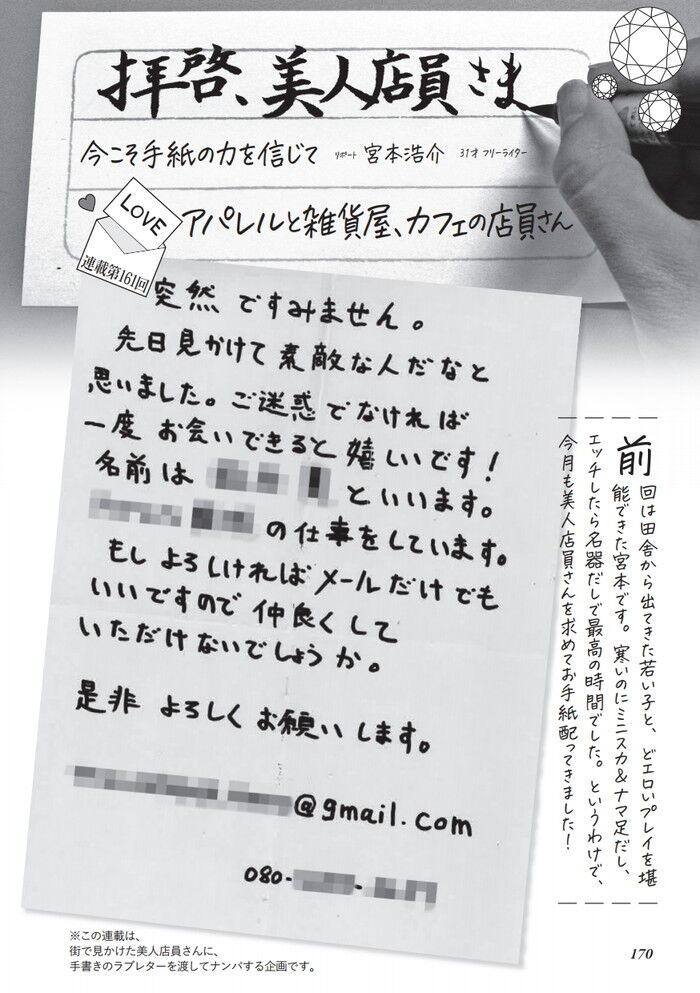 拝啓、美人店員さま
今こそ手紙の力を信じて リポート 宮本浩介 31才 フリーライター
LOVE
連載第161回
アパレルと雑貨屋、カフェの店員さん
突然ですみません。
先日見かけて素敵な人だなと
思いました。ご迷惑でなければ
一度お会いできると嬉しいです!
名前は
といいます。
の仕事をしています。
もしよろしければメールだけでも
いいですので仲良くして
いただけないでしょうか。
是非よろしくお願いします。
@gmail.com
080-
前回は田舎から出てきた若い子と、どエロいプレイを堪
能できた宮本です。寒いのにミニスカ&ナマ足だし、
エッチしたら名器だしで最高の時間でした。というわけで、
今月も美人店員さんを求めてお手紙配ってきました!
※この連載は、
街で見かけた美人店員さんに、
手書きのラブレターを渡してナンパする企画です。
170